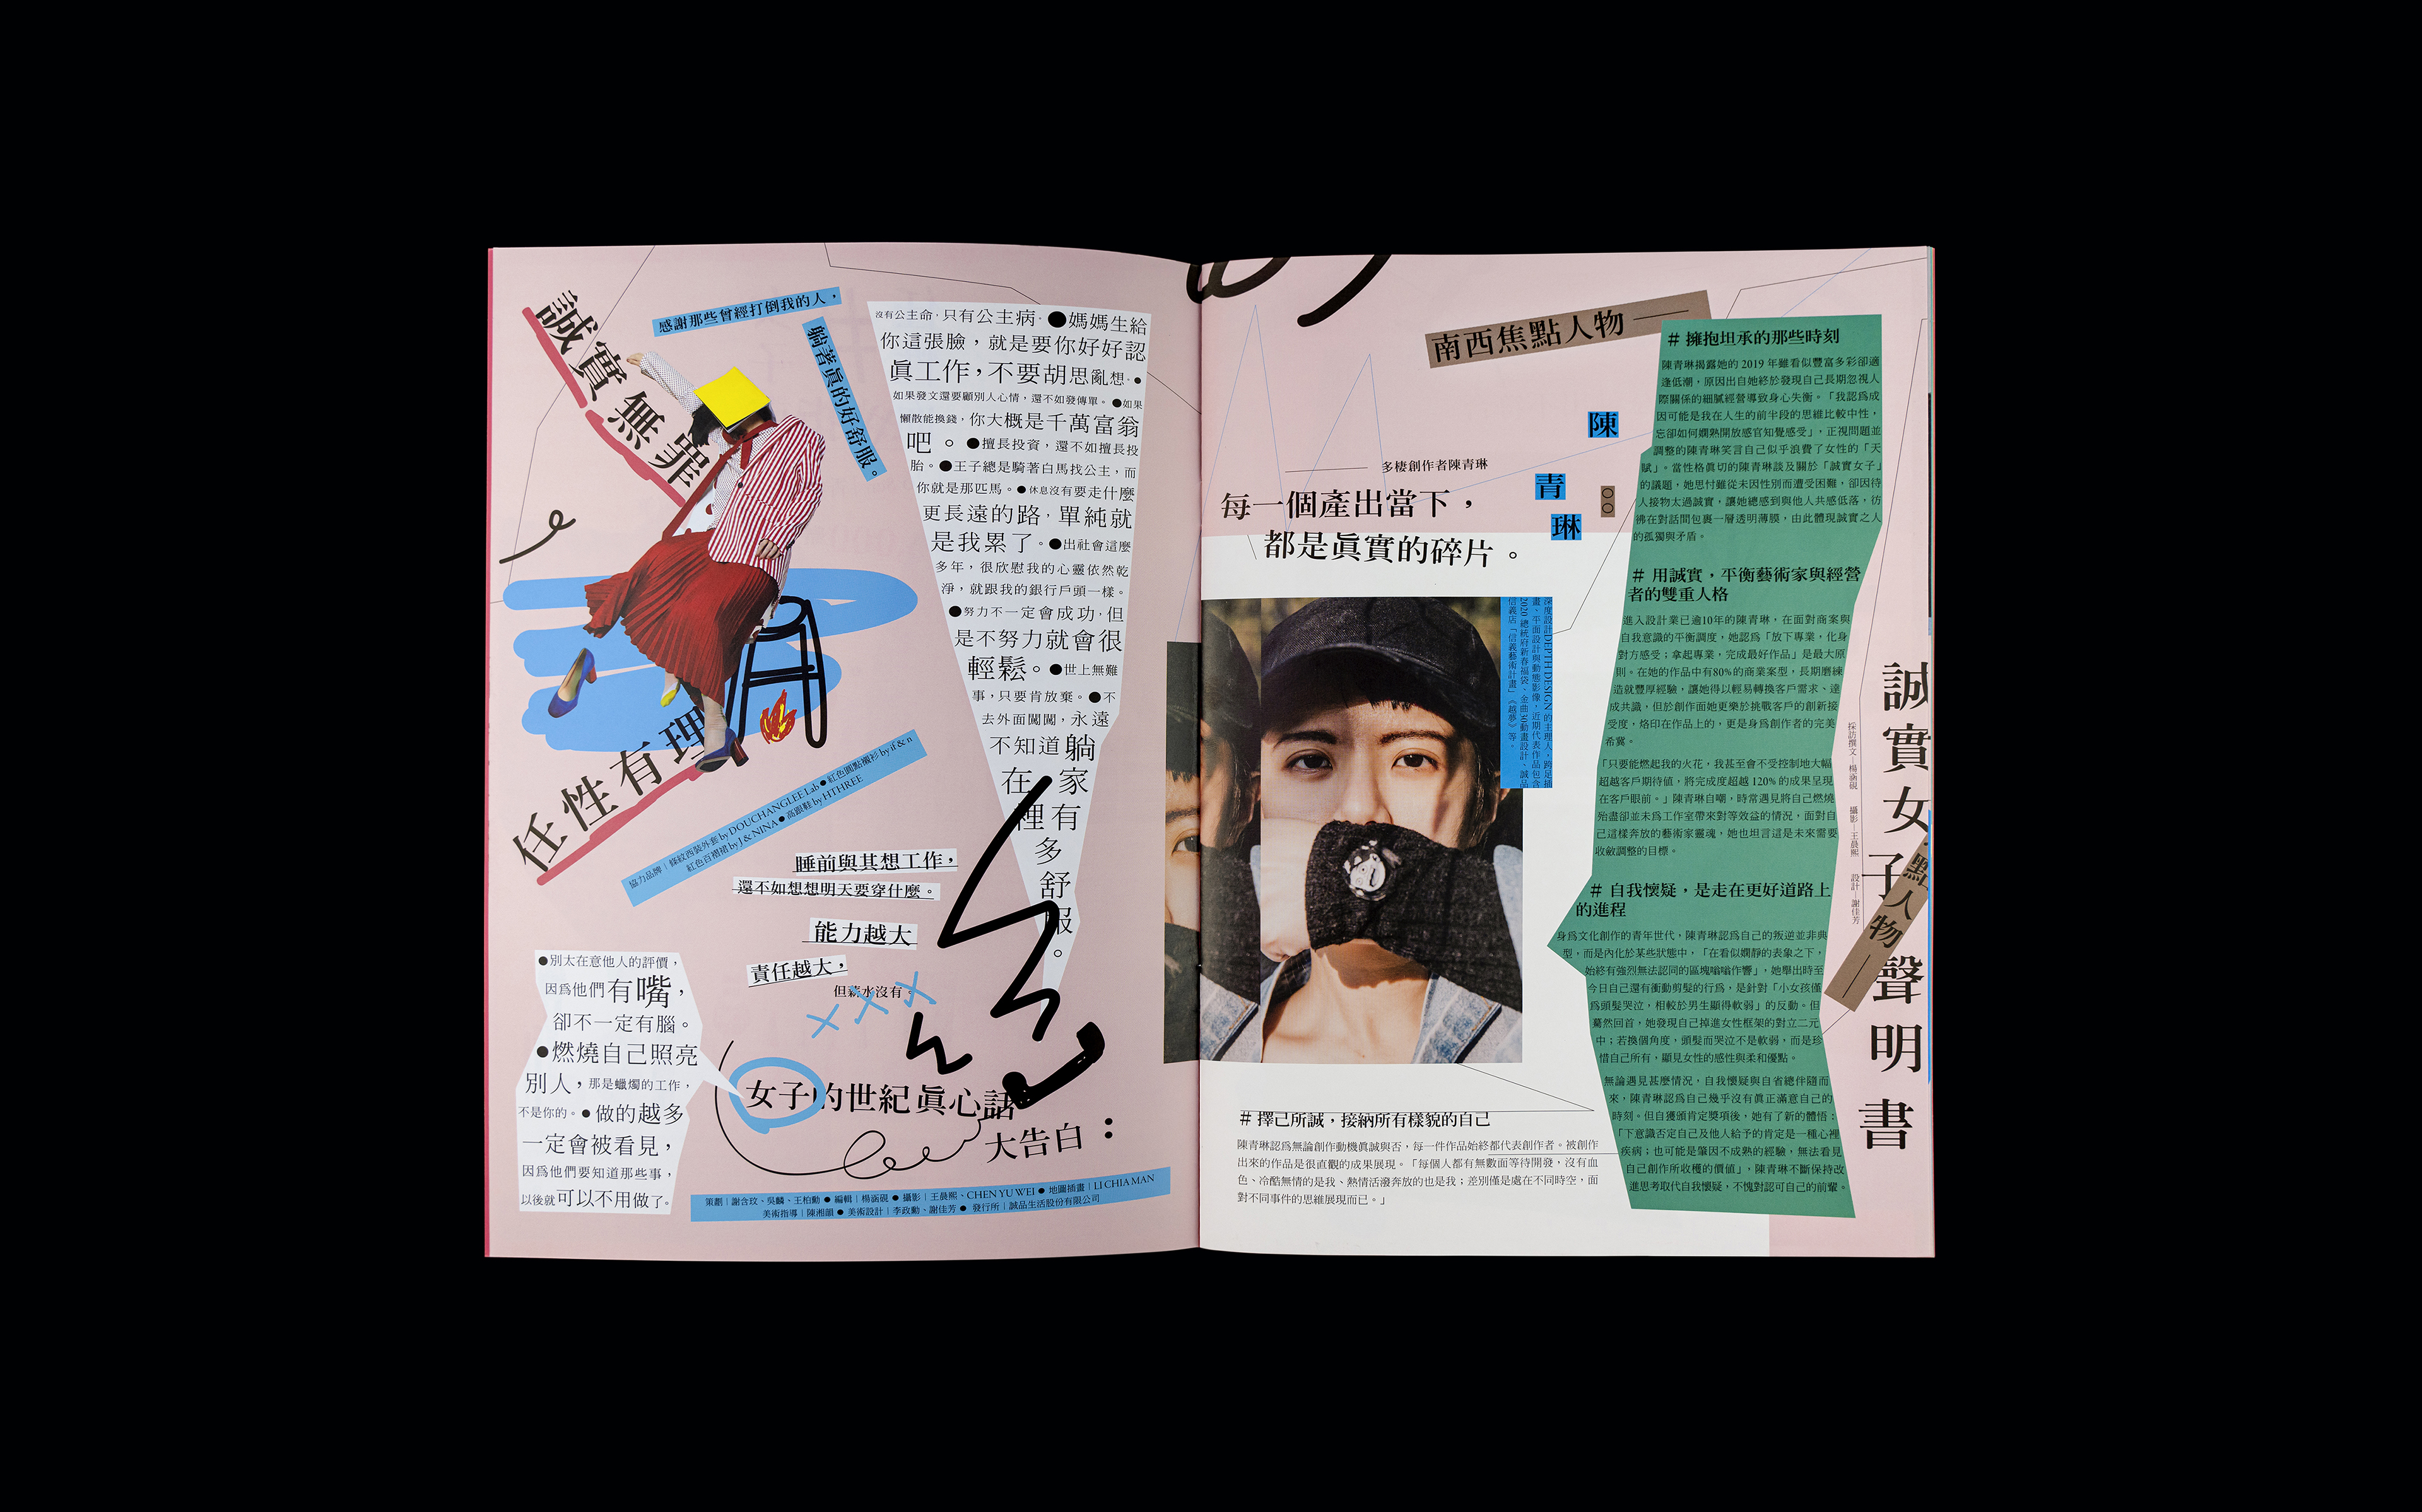 誠實無罪
任性有理
感謝那些曾經打倒我的人，
躺著真的好舒服。
沒有公主命，只有公主病。●媽媽生給
你這張臉，就是要你好好認
真工作，不要胡思亂想。●
如果發文還要顧別人心情，還不如發傳單。●如果
懶散能換錢，你大概是千萬富翁
吧。●擅長投資，還不如擅長投
胎。●王子總是騎著白馬找公主，而
你就是那匹馬。●休息沒有要走什麼
更長遠的路，單純就
是我累了。●出社會這麼
多年，很欣慰我的心靈依然乾
淨，就跟我的銀行戶頭一樣。
●努力不一定會成功，但
是不努力就會很
輕鬆。●世上無難
事，只要肯放棄。●不
去外面闖闖，永遠
不知道躺
在家
裡有
多
舒
服
。
協力品牌｜條紋西裝外套 by DOUCHANGLEE Lab ● 紅色圓點襯衫 by if & n
紅色百褶裙 by J & NINA ● 高跟鞋 by HTHREE
睡前與其想工作，
還不如想想明天要穿什麼。
能力越大
責任越大，
但薪水沒有。
●別太在意他人的評價，
因為他們有嘴，
卻不一定有腦。
●燃燒自己照亮
別人，那是蠟燭的工作，
不是你的。●做的越多
一定會被看見，
因為他們要知道那些事，
以後就可以不用做了。
女子的世紀真心話
大告白：
策劃｜謝含玟、吳麟、王柏勳 ● 編輯｜楊涵硯 ● 攝影｜王晨熙、CHEN YU WEI ● 地圖插畫｜LI CHIA MAN
美術指導｜陳湘韻 ● 美術設計｜李政勳、謝佳芳 ● 發行所｜誠品生活股份有限公司
南西焦點人物——
陳
青
琳
多棲創作者陳青琳
每一個產出當下，
都是真實的碎片。
深度設計DEPTH DESIGN 的主理人，跨足插
畫、平面設計與動態影像，近期代表作品包含
2020總統府新春福袋、金曲30動畫設計、誠品
信義店「信義藝術計畫」《越夢》等。
# 擇己所誠，接納所有樣貌的自己
陳青琳認為無論創作動機真誠與否，每一件作品始終都代表創作者。被創作
出來的作品是很直觀的成果展現。「每個人都有無數面等待開發，沒有血
色、冷酷無情的是我、熱情活潑奔放的也是我；差別僅是處在不同時空，面
對不同事件的思維展現而已。」
# 擁抱坦承的那些時刻
陳青琳揭露她的 2019 年雖看似豐富多彩卻適
逢低潮，原因出自她終於發現自己長期忽視人
際關係的細膩經營導致身心失衡。「我認為成
因可能是我在人生的前半段的思維比較中性，
忘卻如何嫻熟開放感官知覺感受」，正視問題並
調整的陳青琳笑言自己似乎浪費了女性的「天
賦」。當性格真切的陳青琳談及關於「誠實女子」
的議題，她思忖雖從未因性別而遭受困難，卻因待
人接物太過誠實，讓她總感到與他人共感低落，彷
彿在對話間包裹一層透明薄膜，由此體現誠實之人
的孤獨與矛盾。
# 用誠實，平衡藝術家與經營
者的雙重人格
進入設計業已逾10年的陳青琳，在面對商案與
自我意識的平衡調度，她認為「放下專業，化身
對方感受；拿起專業，完成最好作品」是最大原
則。在她的作品中有80%的商業案型，長期磨練
造就豐厚經驗，讓她得以輕易轉換客戶需求、達
成共識，但於創作面她更樂於挑戰客戶的創新接
受度，烙印在作品上的，更是身為創作者的完美
希冀。
「只要能燃起我的火花，我甚至會不受控制地大幅
超越客戶期待值，將完成度超越 120% 的成果呈現
在客戶眼前。」陳青琳自嘲，時常遇見將自己燃燒
殆盡卻並未為工作室帶來對等效益的情況，面對自
己這樣奔放的藝術家靈魂，她也坦言這是未來需要
收斂調整的目標。
# 自我懷疑，是走在更好道路上
的進程
身為文化創作的青年世代，陳青琳認為自己的叛逆並非典
型，而是內化於某些狀態中，「在看似嫻靜的表象之下，
始終有強烈無法認同的區塊嗡嗡作響」，她舉出時至
今日自己還有衝動剪髮的行為，是針對「小女孩僅
為頭髮哭泣，相較於男生顯得軟弱」的反動。但
驀然回首，她發現自己掉進女性框架的對立二元
中；若換個角度，頭髮而哭泣不是軟弱，而是珍
惜自己所有，顯見女性的感性與柔和優點。
無論遇見甚麼情況，自我懷疑與自省總伴隨而
來，陳青琳認為自己幾乎沒有真正滿意自己的
時刻。但自獲頒肯定獎項後，她有了新的體悟：
「下意識否定自己及他人給予的肯定是一種心裡
疾病；也可能是肇因不成熟的經驗，無法看見
自己創作所收穫的價值」，陳青琳不斷保持改
進思考取代自我懷疑，不愧對認可自己的前輩。
採訪撰文—楊涵硯　攝影—王晨熙　設計—謝佳芳
誠實女子聲明書
點人物——